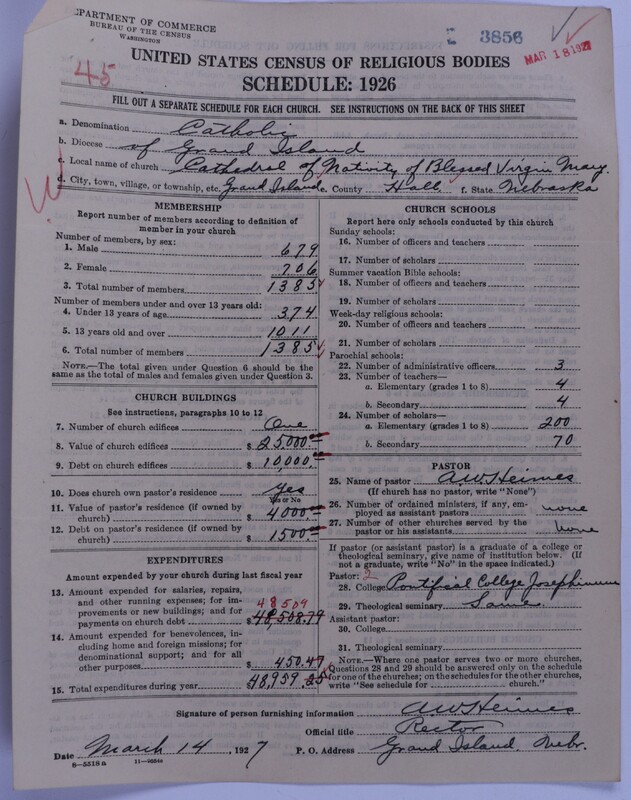 DEPARTMENT OF COMMERCE
BUREAU OF THE CENSUS
WASHINGTON
3856
MAR 18 1927
45
UNITED STATES CENSUS OF RELIGIOUS BODIES
SCHEDULE: 1926
FILL OUT A SEPARATE SCHEDULE FOR EACH CHURCH. SEE INSTRUCTIONS ON THE BACK OF THIS SHEET
a. Denomination Catholic
b. Diocese of Grand Island
c. Local name of church Cathedral of Nativity of Blessed Virgin Mary.
d. City, town, village, or township, etc. Grand Island e. County Hall f. State Nebraska
MEMBERSHIP
Report number of members according to definition of
member in your church
Number of members, by sex:
1. Male 679
2. Female 706
3. Total number of members 1385
Number of members under and over 13 years old:
4. Under 13 years of age 374
5. 13 years old and over 1011
6. Total number of members 1385
NOTE.—The total given under Question 6 should be
same as the total of males and females given under Question 3.
CHURCH BUILDINGS
See instructions, paragraphs 10 to 12
7. Number of church edifices One
8. Value of church edifices $ 25,000.00
9. Debt on church edifices $ 10,000.00
10. Does church own pastor's residence Yes
Yes or No
11. Value of pastor's residence (if owned by
church) $ 4000.00
12. Debt on pastor's residence (if owned by
church) $ 1500.00
EXPENDITURES
Amount expended by your church during last fiscal year
13. Amount expended for salaries, repairs,
and other running expenses; for im-
provements or new buildings; and for 48509
payments on church debt $ 48,508.79
14. Amount expended for benevolences,
including home and foreign missions; for
denominational support; and for all
other purposes $ 450.47
15. Total expenditures during year $ 48,959.25
CHURCH SCHOOLS
Report here only schools conducted by this church
Sunday schools:
16. Number of officers and teachers
17. Number of scholars
Summer vacation Bible schools:
18. Number of officers and teachers
19. Number of scholars
Week-day religious schools:
20. Number of officers and teachers
21. Number of scholars
Parochial schools:
22. Number of administrative officers 3
23. Number of teachers—
a. Elementary (grades 1 to 8) 4
b. Secondary 4
24. Number of scholars—
a. Elementary (grades 1 to 8) 200
b. Secondary 70
PASTOR
25. Name of pastor AW Heimes
(If church has no pastor, write "None")
26. Number of ordained ministers, if any, em-
ployed as assistant pastors none
27. Number of other churches served by the
pastor or his assistants None
If pastor (or assistant pastor) is a graduate of a college or
theological seminary, give name of institution below. (If
not a graduate, write "No" in the space indicated.)
Pastor: 2
28. College Pontifical College Josephinum
29. Theological seminary Same
Assistant pastor:
30. College
31. Theological seminary
NOTE.—Where one pastor serves two or more churches,
Questions 28 and 29 should be answered only on the schedule
for one of the churches; on the schedules for the other churches,
write "See schedule for church."
Signature of person furnishing information AW Heimes
Official title Rector
Date March 14, 1927 P. O. Address Grand Island, Nebr.
8—5518a 11—90544